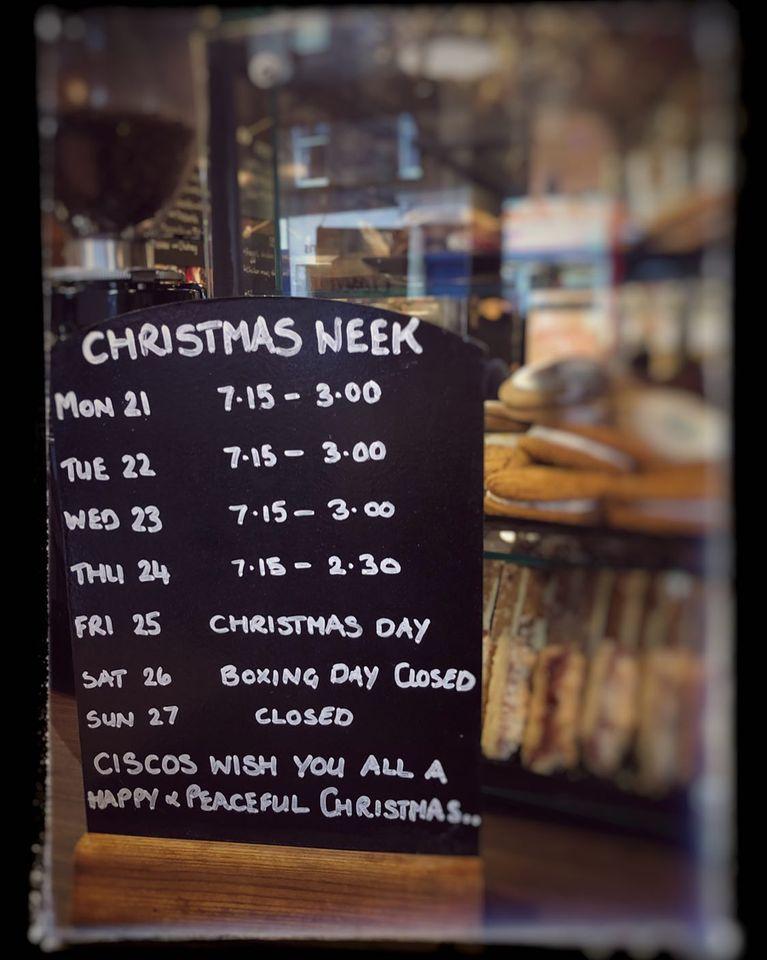 CHRISTMAS WEEK
MON 21 7.15 - 3.00
TUE 22 7.15 - 3.00
WED 23 7.15 - 3.00
THU 24 7.15 - 2.30
FRI 25 CHRISTMAS DAY
SAT 26 BOXING DAY CLOSED
SUN 27 CLOSED
CISCOS WISH YOU ALL A
HAPPY & PEACEFUL CHRISTMAS..